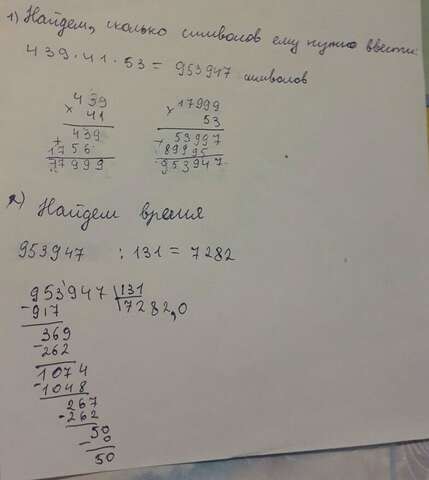 1) Найдем, сколько символов ему нужно ввести:
439 · 41 · 53 = 953947 символов
× 439
41
+ 439
1756
17999
× 17999
53
+ 53997
89995
953947
2) Найдем время
953947 : 131 = 7282
953947 | 131
- 917 | 7282,0
369
- 262
1074
- 1048
267
- 262
50
- 0
50